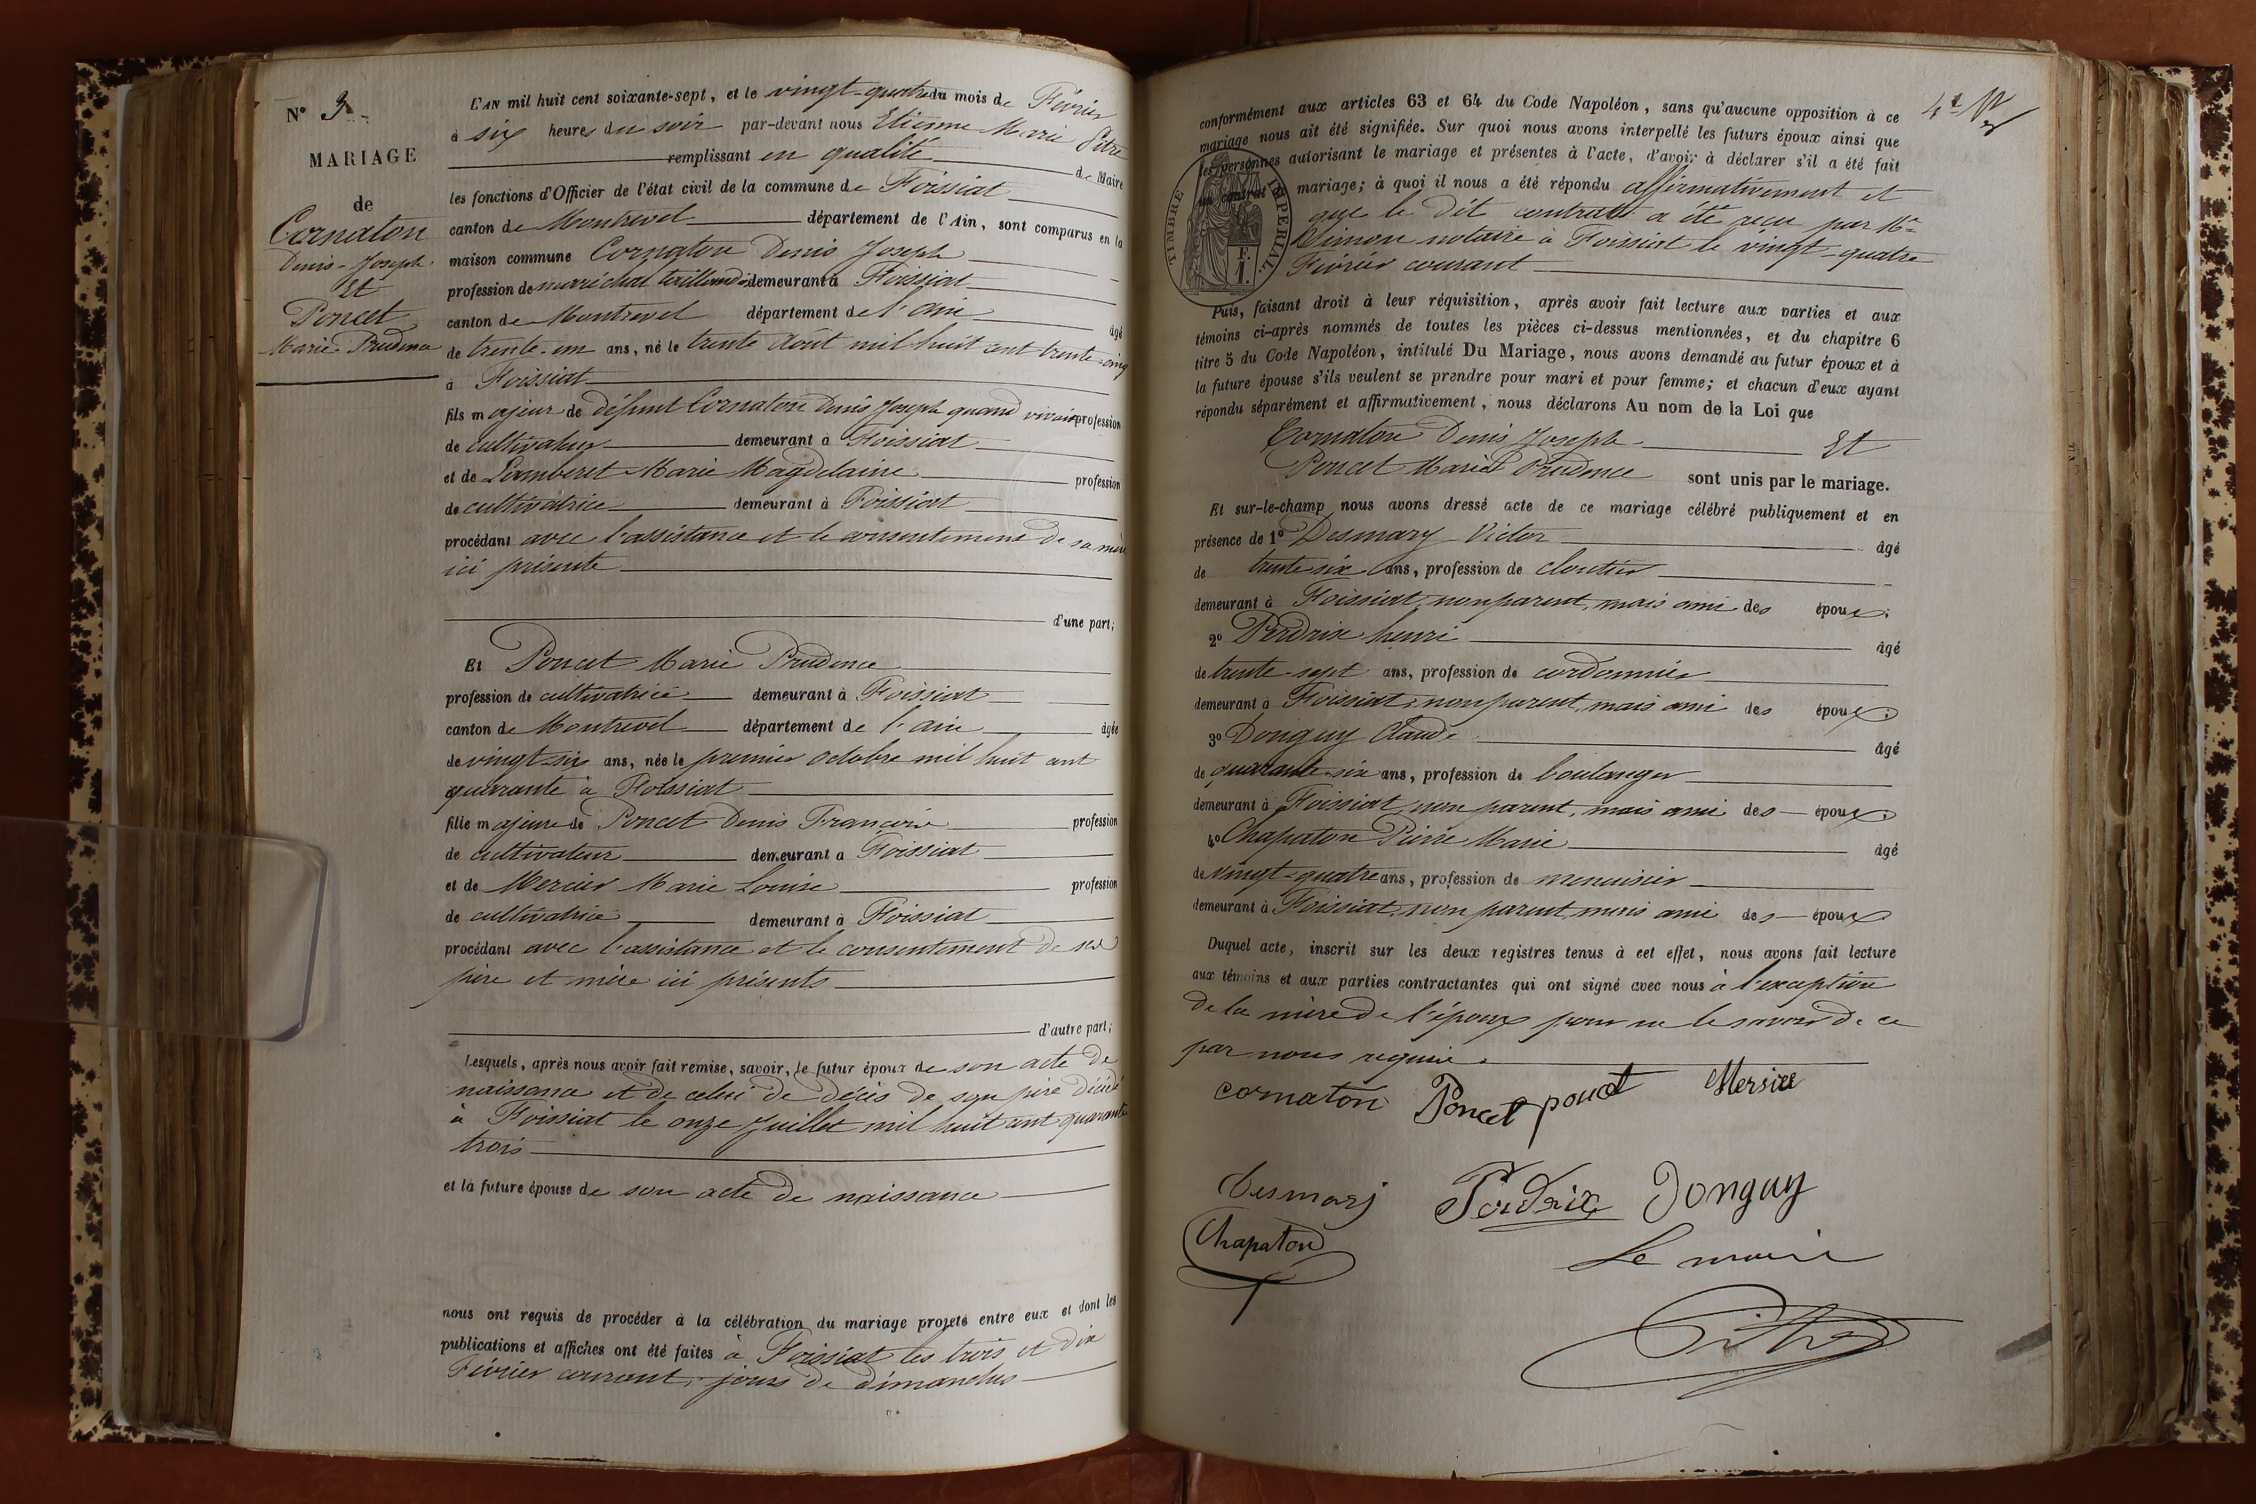 N° 3
MARIAGE
de
Cornaton
Denis-Joseph
Et
Poncet
Marie Prudence
L'AN mil huit cent soixante-sept, et le vingt-quatre du mois de Février
à six heures du soir par-devant nous Etienne Marie Pitre
remplissant en qualité de Maire
les fonctions d'Officier de l'état civil de la commune de Foissiat
canton de Montrevel département de l'Ain, sont comparus en la
maison commune Cornaton Denis Joseph
profession de maréchal taillandier demeurant à Foissiat
canton de Montrevel département de l'Ain âgé
de trente-un ans, né le trente Août mil huit cent trente-cinq
à Foissiat
fils majeur de défunt Cornaton Denis Joseph quand vivait profession
de cultivateur demeurant à Foissiat
et de Lamberet Marie Magdelaine profession
de cultivatrice demeurant à Foissiat
procédant avec l'assistance et le consentement de sa mère
ici présente
d'une part;
Et Poncet Marie Prudence
profession de cultivatrice demeurant à Foissiat
canton de Montrevel département de l'ain âgée
de vingt-six ans, née le premier octobre mil huit cent
quarante à Foissiat
fille majeure de Poncet Denis François profession
de cultivateur demeurant à Foissiat
et de Mercier Marie Louise profession
de cultivatrice demeurant à Foissiat
procédant avec l'assistance et le consentement de ses
père et mère ici présents
d'autre part;
Lesquels, après nous avoir fait remise, savoir, le futur époux de son acte de
naissance et de celui de décès de son père décédé
à Foissiat le onze Juillet mil huit cent quarante
trois
et la future épouse de son acte de naissance
nous ont requis de procéder à la célébration du mariage projeté entre eux et dont les
publications et affiches ont été faites à Foissiat les trois et dix
Février courant, jours de dimanches
conformément aux articles 63 et 64 du Code Napoléon, sans qu'aucune opposition à ce
mariage nous ait été signifiée. Sur quoi nous avons interpellé les futurs époux ainsi que
les personnes autorisant le mariage et présentes à l'acte, d'avoir à déclarer s'il a été fait
un contrat mariage; à quoi il nous a été répondu affirmativement et
que le dit contrat a été reçu par Me
Simon notaire à Foissiat le vingt-quatre
Février courant
TIMBRE IMPERIAL
Puis, faisant droit à leur réquisition, après avoir fait lecture aux parties et aux
témoins ci-après nommés de toutes les pièces ci-dessus mentionnées, et du chapitre 6
titre 5 du Code Napoléon, intitulé Du Mariage, nous avons demandé au futur époux et à
la future épouse s'ils veulent se prendre pour mari et pour femme; et chacun d'eux ayant
répondu séparément et affirmativement, nous déclarons Au nom de la Loi que
Cornaton Denis Joseph Et
Poncet Marie Prudence sont unis par le mariage.
Et sur-le-champ nous avons dressé acte de ce mariage célébré publiquement et en
présence de 1° Desmary Victor âgé
de trente six ans, profession de cloutier
demeurant à Foissiat, non parent, mais ami des époux.
2° Perdrix henri âgé
de trente-sept ans, profession de cordonnier
demeurant à Foissiat, non parent, mais ami des époux.
3° Donguy Claude âgé
de quarante-six ans, profession de boulanger
demeurant à Foissiat, non parent, mais ami des époux.
4° Chapaton Pierre Marie âgé
de vingt-quatre ans, profession de menuisier
demeurant à Foissiat, non parent, mais ami des époux
Duquel acte, inscrit sur les deux registres tenus à cet effet, nous avons fait lecture
aux témoins et aux parties contractantes qui ont signé avec nous à l'exception
de la mère de l'époux pour ne le savoir de ce
par nous requise.
cornaton Poncet poncet Mersier
Desmarj Perdrix Donguy
Chapaton
Le maire
Pitre